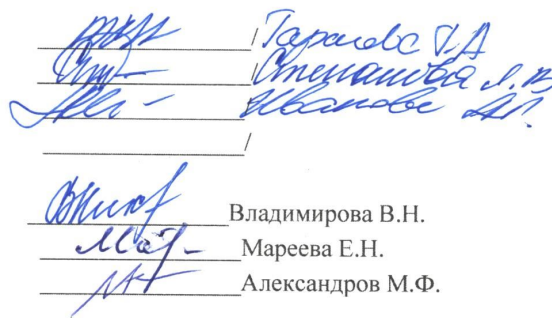 / Тарасова Г.А
/ Степанова Л.В
/ Иванова А.П.
/
Владимирова В.Н.
Мареева Е.Н.
Александров М.Ф.